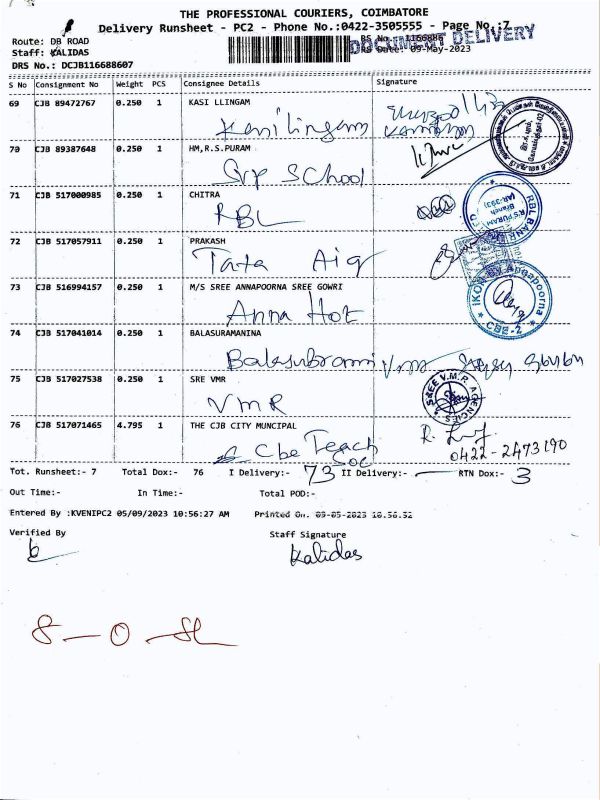 THE PROFESSIONAL COURIERS, COIMBATORE
Delivery Runsheet - PC2 - Phone No.:0422-3505555 - Page No.:7
DOCUMENT DELIVERY
Route: DB ROAD
RS No. 1166886
Staff: KALIDAS
RS Date: 09-May-2023
DRS No.: DCJB116688607
S No Consignment No Weight PCS Consignee Details Signature
69 CJB 89472767 0.250 1 KASI LLINGAM
Kasilingam
70 CJB 89387648 0.250 1 HM,R.S.PURAM
Grp School
71 CJB 517000985 0.250 1 CHITRA
RBL
RBL BANK
R.S PURAM
Branch
(AR-393)
72 CJB 517057911 0.250 1 PRAKASH
Tata Aig
73 CJB 516994157 0.250 1 M/S SREE ANNAPOORNA SREE GOWRI
Anna Hot
IKON By Annapoorna
CBE-2
74 CJB 517041014 0.250 1 BALASURAMANINA
Balasubramni
75 CJB 517027538 0.250 1 SRE VMR
VMR
SREE V.M.R. AGENCIES
76 CJB 517071465 4.795 1 THE CJB CITY MUNCIPAL
Cbe Teach
Soc
0422-2473190
Tot. Runsheet:- 7 Total Dox:- 76 I Delivery:- 73 II Delivery:- — RTN Dox:- 3
Out Time:- In Time:- Total POD:-
Entered By :KVENIPC2 05/09/2023 10:56:27 AM Printed On. 09-05-2023 10.56.52
Verified By Staff Signature
Kalidas